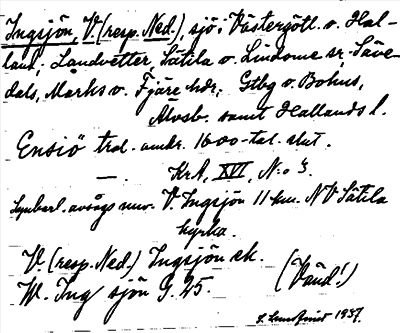 Ingsjön, V. (resp. Ned.), sjö i Västergötl. o. Hal-
land, Landvetter, Sätila o. Lindome sr, Säve-
dals, Marks o. Fjäre hdr, Gtbg o. Bohus,
Älvsb. samt Hallands l.
Ensiö trol. omkr. 1600-tal. slut.
— . KrA, XVI, N:o 3.
Uppenbarl. avses nuv. V. Ingsjön 11 km. NV Sätila
kyrka
V. (resp. Ned.) Ingsjön ek.
W. Ing sjön G. 25.
(Vänd!)
E. Lundqvist 1937.